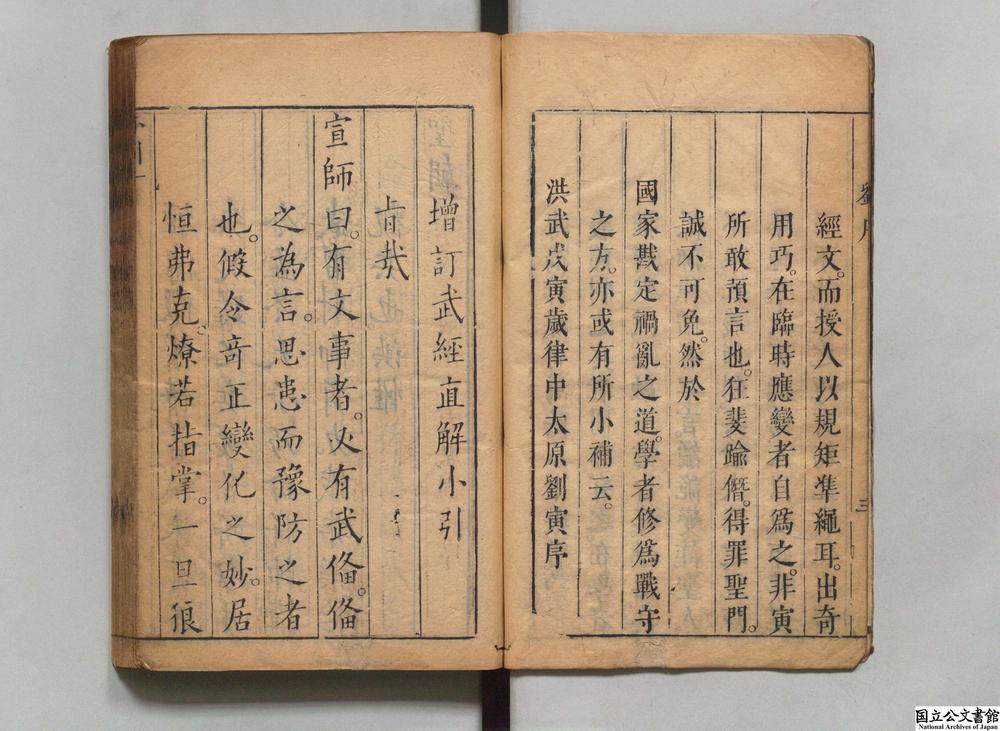 經文。而授人以規矩準繩耳。出奇
用巧。在臨時應變者自爲之。非寅
所敢預言也。狂斐踰僭。得罪聖門。
誠不可免。然於
國家戡定禍亂之道。學者修爲戰守
之方。亦或有所小補云。
洪武戊寅歲律中太原劉寅序
三
增訂武經直解小引
旨哉
宣師曰。有文事者。必有武俻。俻
之為言。思患而豫防之者
也。假令竒正變化之妙。居
恒弗克。燎若指掌。一旦狠
国立公文書館
National Archives of Japan